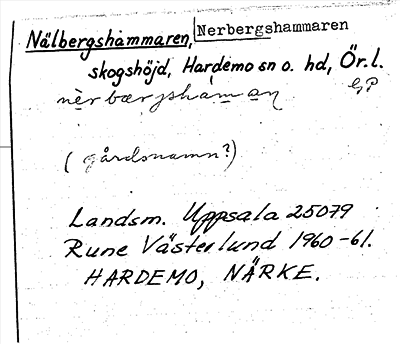 Nälbergshammaren, Nerbergshammaren
skogshöjd, Hardemo sn o. hd, Ör. l.
GP
nèrbærjshamaŋ
(gårdsnamn?)
Landsm. Uppsala 25079
Rune Västerlund 1960-61.
HARDEMO, NÄRKE.